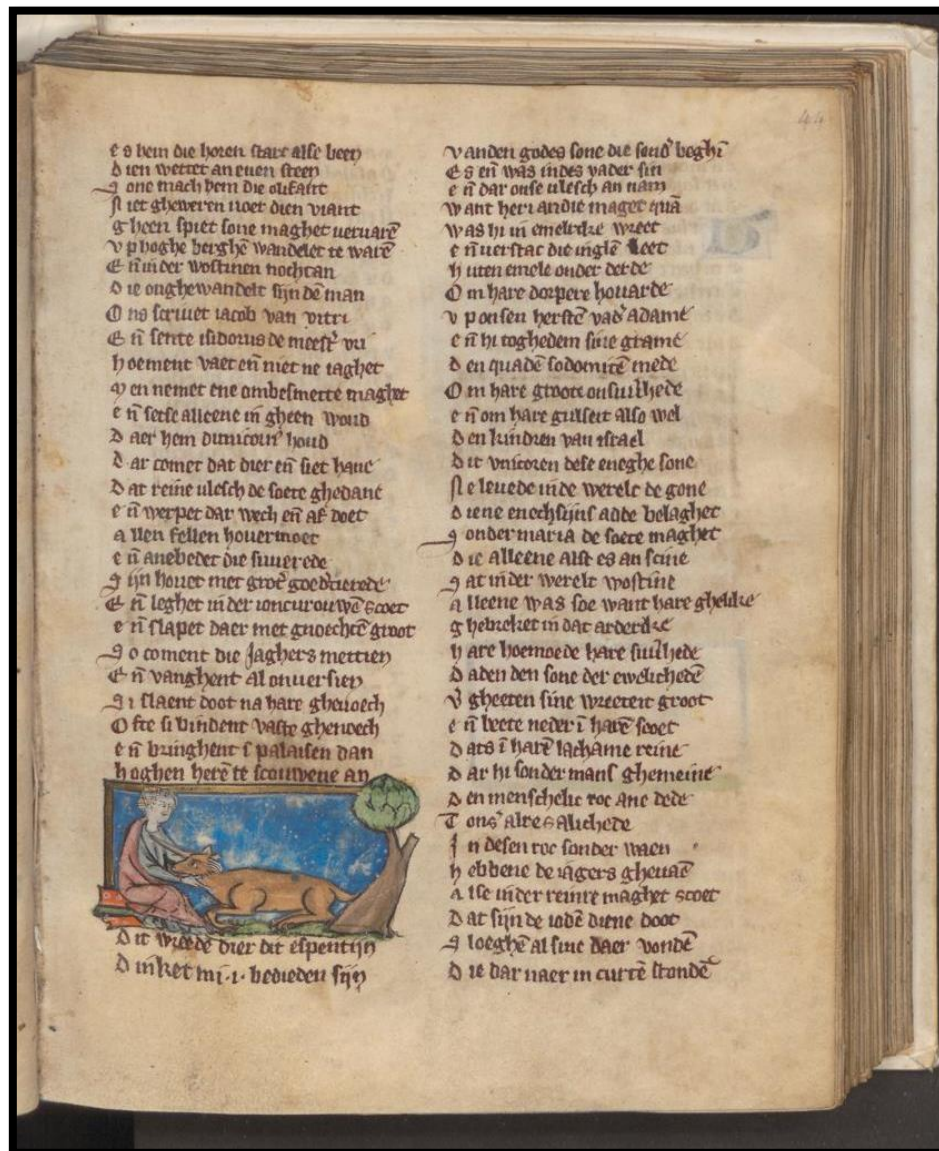 44
es hem die horen starc alse been
Dien wettet an euen steen
Sone mach hem die olifant
Niet gheweren uoer dien viant
gheen spiet sone maghet veruarē
vp hoghe berghē wandelet te warē
Eñ in der wostinen nochtan
Die onghewandelt sijn dē man
Ons scriuet iacob van vitri
Eñ sente isidorus de
hoement vaet eñ niet ne iaghet
Men nemet ene ombesmette maghet
eñ setse alleene in gheen woud
Daer hem houd
Dar comet dat dier eñ siet haue
Dat reine vlesch de soete ghedane
eñ werpet dar wech eñ af doet
allen fellen houermoet
eñ anebedet die suuerede
Sijn houet met
Eñ leghet in der ioncurouwē scoet
eñ slapet daer met gnoechtē groot
So coment die Jaghers mettien
Eñ vanghent al onuersien
Si slaent doot na hare gheuoech
Ofte si bindent vaste ghenoech
eñ bringhent palaisen dan
hoghen herē te scouwene an
Dit wrede dier dit espentijn
Dinket mi .i. bedieden sijn
vanden godes sone die sond' beghī
Es eñ was in des vader sin
eñ dar onse vlesch an nam
want her i an die maget quā
was hi in emelrike wreet
eñ verstac die inglē leet
huten emele onder derde
Om hare dorpere houarde
vp onsen herstē vad' adame
eñ hi toghedem sine grame
Den quadē sodomitē mede
Om hare groote onsuuerhede
eñ om hare gulseit also wel
Den kindren van israel
Dit vnicoren dese eneghe sone
Ne leuede in de werelt de gone
Diene adde belaghet
Sonder maria de soete maghet
Die alleene alst es an scine
Sat in der werelt wostine
alleene was soe want hare ghelike
ghebreket in dat arderike
hare hoemoede hare suuerhede
Daden den sone der ewelichedē
V'gheeten sine wreeteit groot
eñ beete neder ī harē scoet
Dats ī harē lachame reine
Dar hi sonder mans ghemeine
Den menschelic roc ane dede
Tons' alre salichede
In desen roc sonder waen
hebbene de iagers gheuaē
alse in der reinre maghet scoet
Dat sijn de iodē diene doot
Sloeghē al sine daer vondē
Die dar naer in curtē stondē